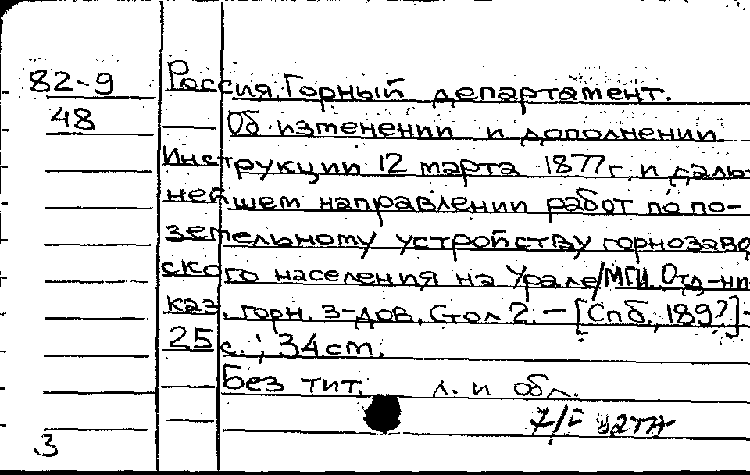 82-9 Россия. Горный департамент.
48 Об изменении и дополнении
Инструкции 12 марта 1877 г. и даль-
нейшем направлении работ по по-
земельному устройству горнозавод
ского населения на Урале/МГИ. Отд-ни
каз. горн. з-дов. Стол 2. - [Спб., 189?]-
25 с.; 34 cm.
Без тит. л. и обл.
3